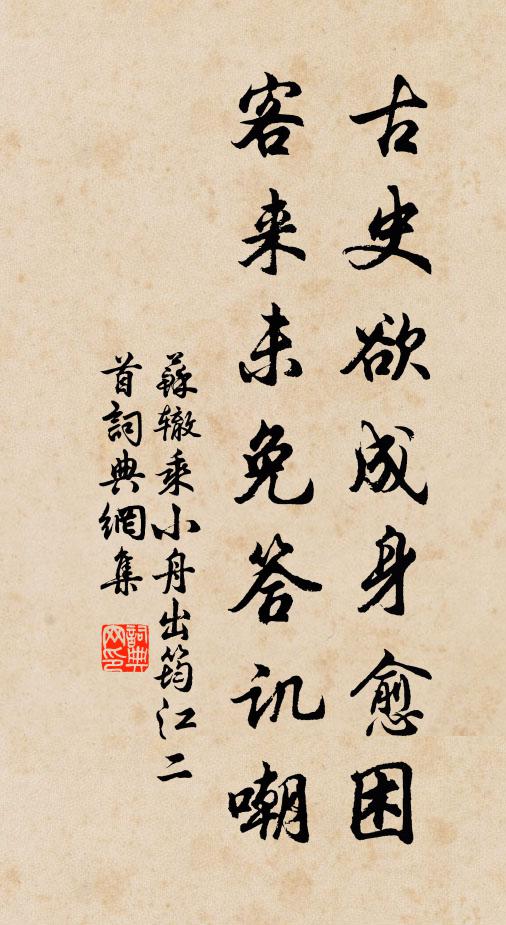 古史欲成身愈困
客来未免答讥嘲
蘇辙乘小舟出筠江二
首詞典網集
詞典
网印